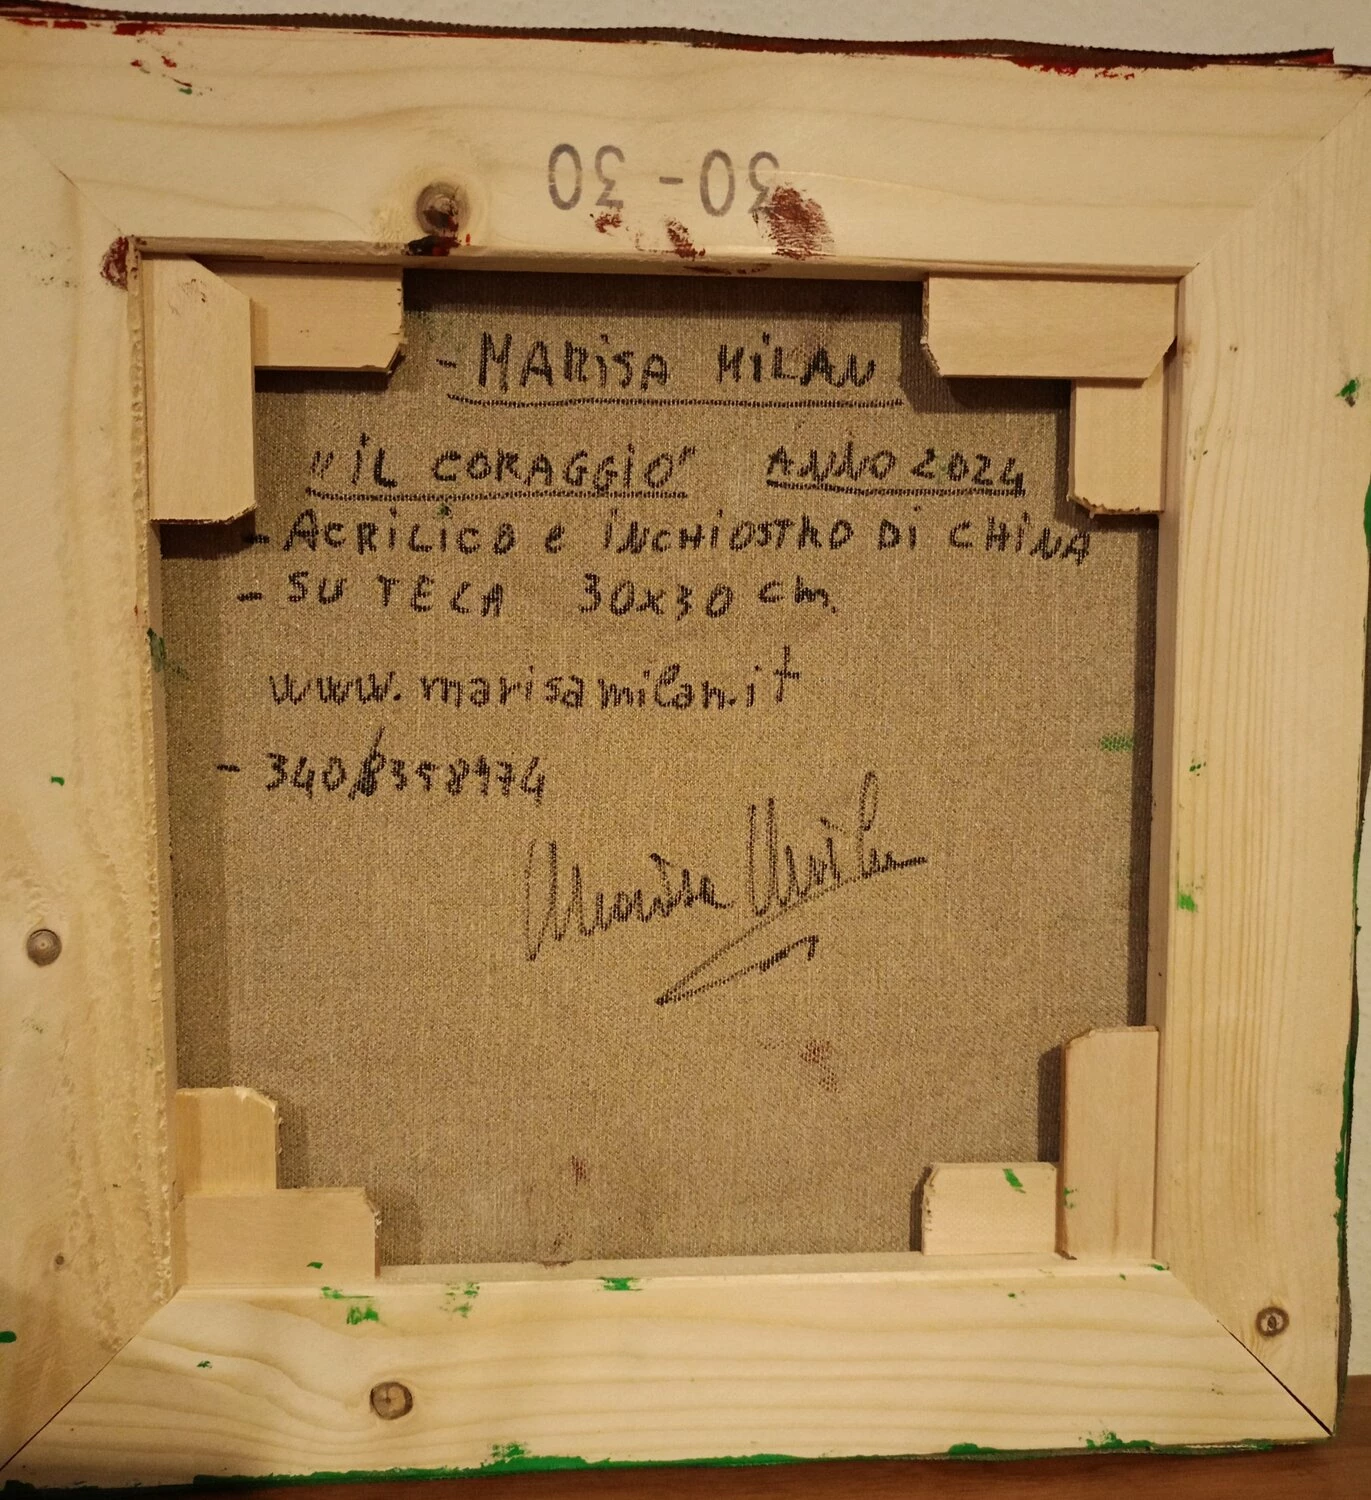 30-30
- MARiSA MiLAN
"iL CORAGGiO" ANNO 2024
- ACRiLiCO e iNCHiOSTRO Di CHiNA
- SU TELA 30x30 cm.
www.marisamilan.it
- 340/8358974
Marisa Milan